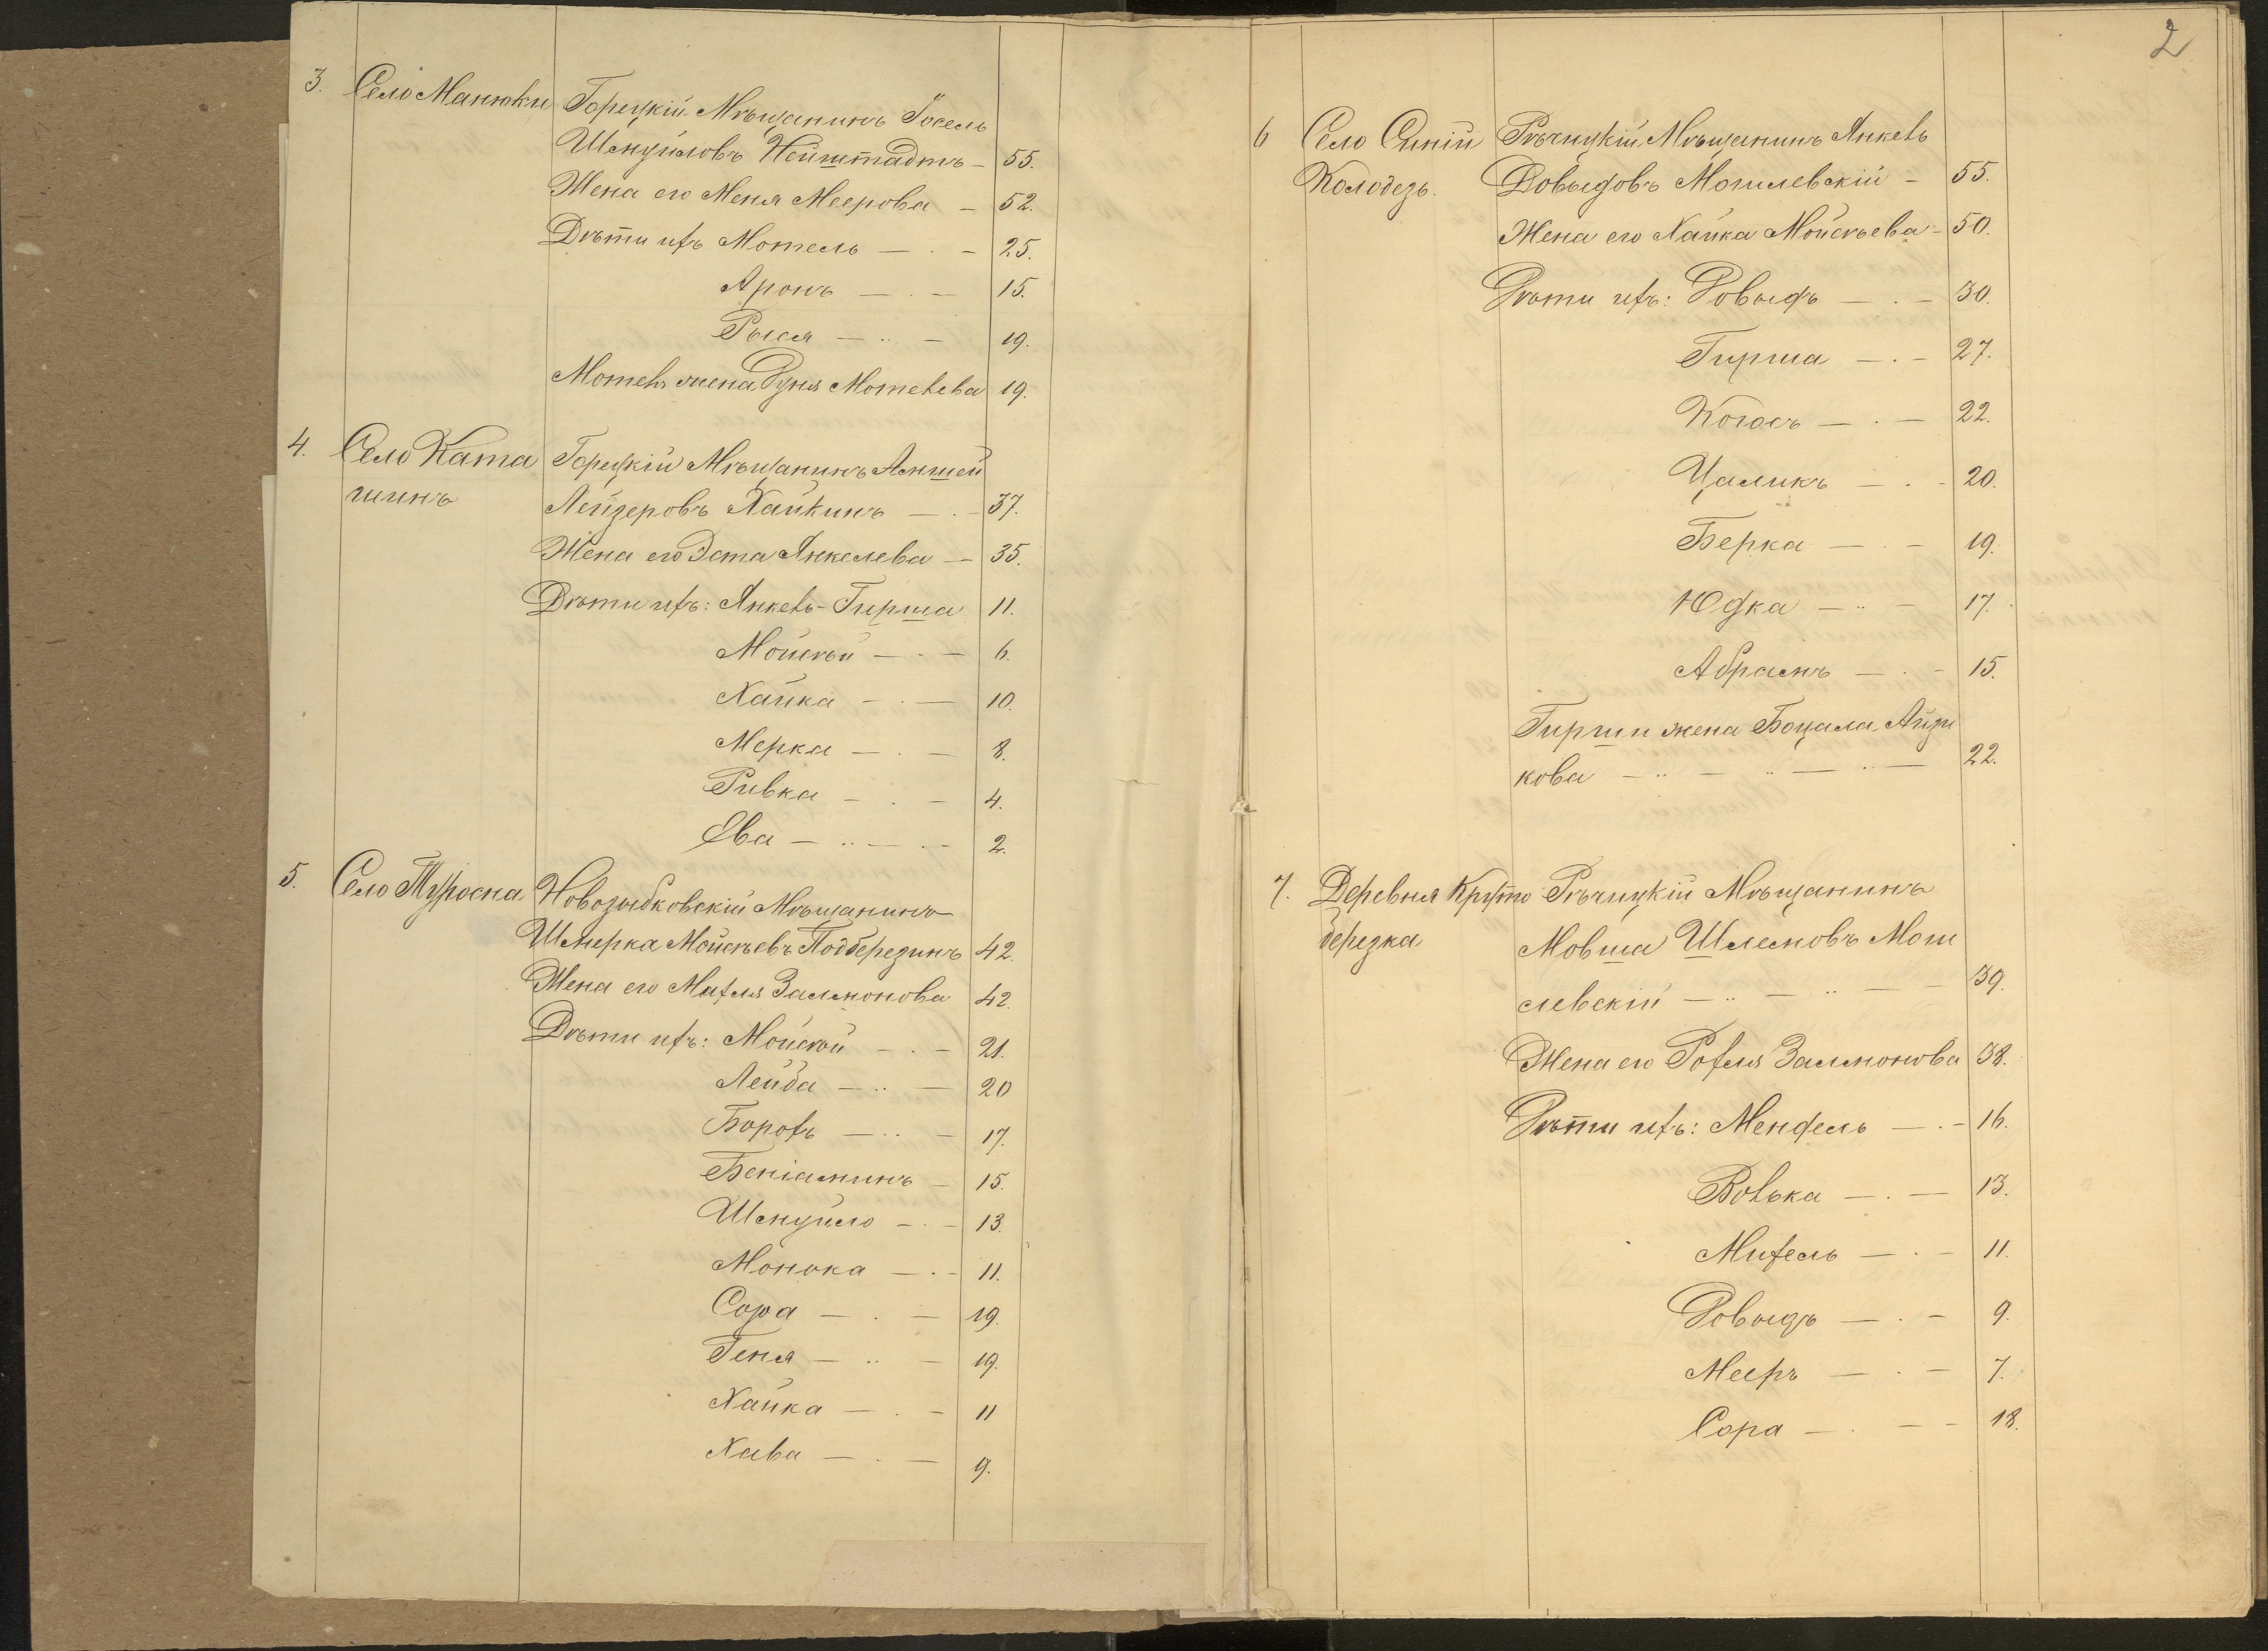 3. Село Манюки Горецкій Мѣщанинъ Іосель
Шмуйловъ Нейштадтъ - 55.
Жена его Меня Меерова - 52.
Дѣти ихъ Мотель - 25.
Аронъ - 15.
Рыся - 19.
Мотеля жена Дуня Мотелева 19.
4. Село Ката Горецкій Мѣщанинъ Аншей
шинъ Лейзеровъ Хайкинъ - 37.
Жена его Эста Янкелева - 35.
Дѣти ихъ: Янкель-Гирша 11.
Мойсѣй - 6.
Хайка - 10.
Мерка - 8.
Ривка - 4.
Ева - 2.
5. Село Туросна Новозыбковскій Мѣщанинъ
Шмерка Мойсѣевъ Подберезинъ 42.
Жена его Михля Залмонова 42.
Дѣти ихъ: Мойсѣй - 21.
Лейба - 20
Борохъ - 17.
Беніаминъ - 15.
Шмуйло - 13.
Монока - 11.
Сора - 19.
Геня - 19.
Хайка - 11
Хава - 9.
2
6 Село Синій Рѣчицкій Мѣщанинъ Янкель
Колодезь. Довыдовъ Могилевскій - 55.
Жена его Хайка Мойсѣева - 50.
Дѣти ихъ: Довыдъ - 30.
Гирша - 27.
Когосъ - 22.
Цаликъ - 20.
Берка - 19.
Юдка - 17.
Абрамъ - 15.
Гирши жена Боцала Айзи
кова - 22.
7. Деревня Круто Рѣчицкій Мѣщанинъ
березка Мовша Шлемовъ Моги
левскій - 39.
Жена его Рохля Залмонова 38.
Дѣти ихъ: Мендель - 16.
Волька - 13.
Михель - 11.
Довыдъ - 9.
Мееръ - 7.
Сора - 18.